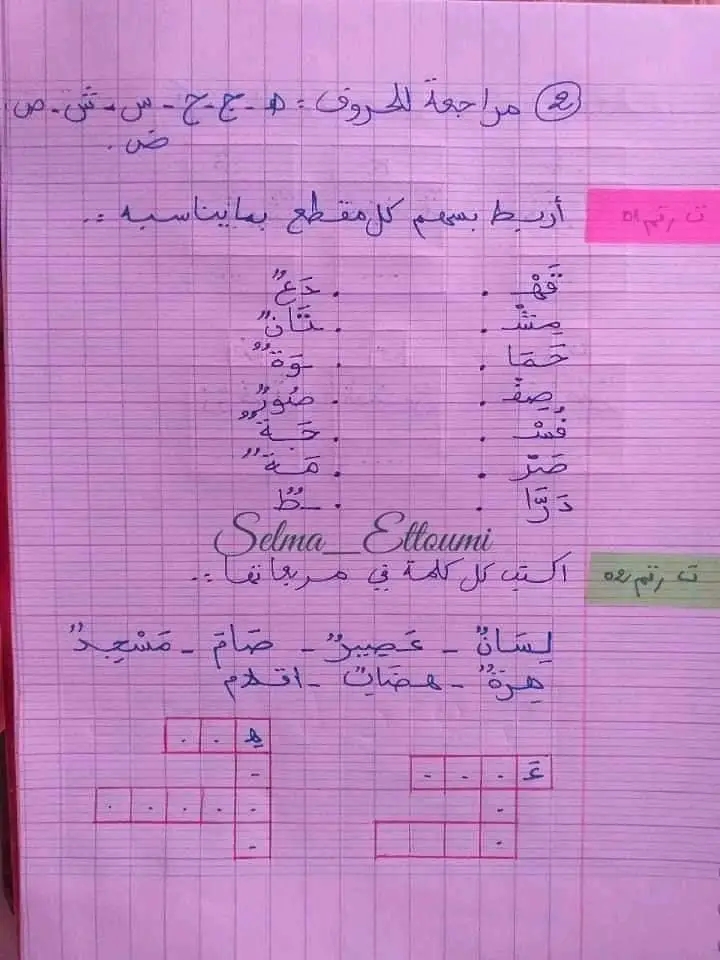 ② مراجعة للحروف : ه - ج - ح - س - ش - ص
ض .
ت رقم 01 أربط بسهم كل مقطع بما يناسبه :.
قَهْـ . . دَعٌ
مِشْـ . . ـتَانٌ
حَمَا . . ـوَةٌ
ضِفْـ . .
فُسْـ . .
. . مَـةٌ
دَرَّا . . ـطٌ
Selma_Ettoumi
ت رقم 02 اكتب كل كلمة في مربعاتها :.
لِسَانٌ - عَصِيرٌ - صَامَ - مَسْجِدٌ
هِرَةٌ - هضابٌ - اقلام
هِـ
عَـ